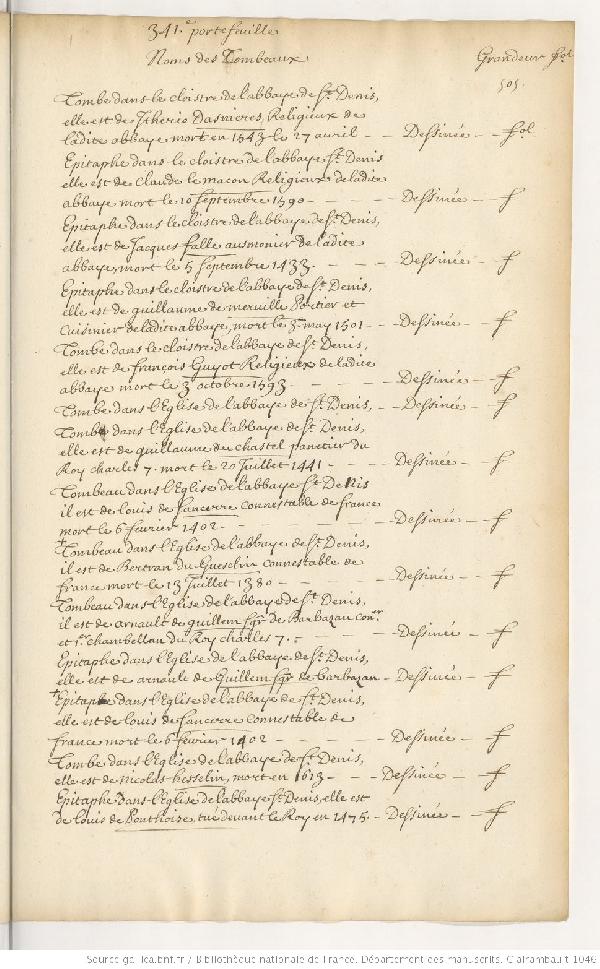 341.e portefeuille
Noms des Tombeaux Grandeur fol.
505.
Tombe dans le cloistre de l'abbaye de St. Denis,
elle est de Religieux de
ladite abbaye mort en 1543 le 27 avril - - Dessinée - - fol.
Epitaphe dans le cloistre de l'abbaye St. Denis
elle est de Claude le macon Religieux deladite
abbaye mort le 10 Septembre 1590 - - - - Dessinée - f
Epitaphe dans le cloistre de l'abbaye de St. Denis,
elle est de Jacques falle ausmonier de ladite
abbaye, mort le 5 Septembre 1433. - - - Dessinée - f
Epitaphe dans le cloistre de l'abbaye de St. Denis,
elle est de guillaume de merville Portier et
Cuisinier deladite abbaye, mort le 3 may 1501 - - Dessinée - f
Tombe dans le cloistre de l'abbaye de St. Denis,
elle est de françois Guyot Religieux de ladite
abbaye mort le 3 octobre 1593 - - - - Dessinée - f
Tombe dans l'Eglise de l'abbaye de St. Denis, - - Dessinée - f
Tombe dans l'Eglise de l'abbaye de St. Denis,
elle est de guillaume du chastel panetier du
Roy charles 7. mort le 20 Juillet 1441 - - - Dessinée - f
Tombeau dans l'Eglise de l'abbaye St. Denis
il est de louis de Sancerre connestable de france
mort le 6 fevrier 1402 - - - - Dessinée - f
+ Tombeau dans l'Eglise de l'abbaye de St. Denis,
il est de Bertran du Guesclin connestable de
france mort le 13 Juillet 1380 - - - - Dessinée - f
Tombeau dans l'Eglise de l'abbaye de St. Denis,
il est de arnault de guillem sgr. de Barbazan coner
et 1er. chambellan du Roy charles 7. - - - Dessinée - f
Epitaphe dans l'Eglise de l'abbaye de St. Denis,
elle est de arnault de Guillem sgr de barbazan - Dessinée - f
+ Epitaphe dans l'Eglise de l'abbaye de St. Denis,
elle est de louis de Sancerre Connestable de
france mort le 6 fevrier 1402 - - - - Dessinée - f
Tombe dans l'Eglise de l'abbaye de St. Denis,
elle est de Nicolas hesselin, mort en 1613 - - - Dessinée - f
Epitaphe dans l'Eglise de l'abbaye St. Denis, elle est
de louis de Ponthoize, tué devant le Roy en 1475 - Dessinée - f
Source gallica.bnf.fr / Bibliothèque nationale de France. Département des manuscrits. Clairambault 1046